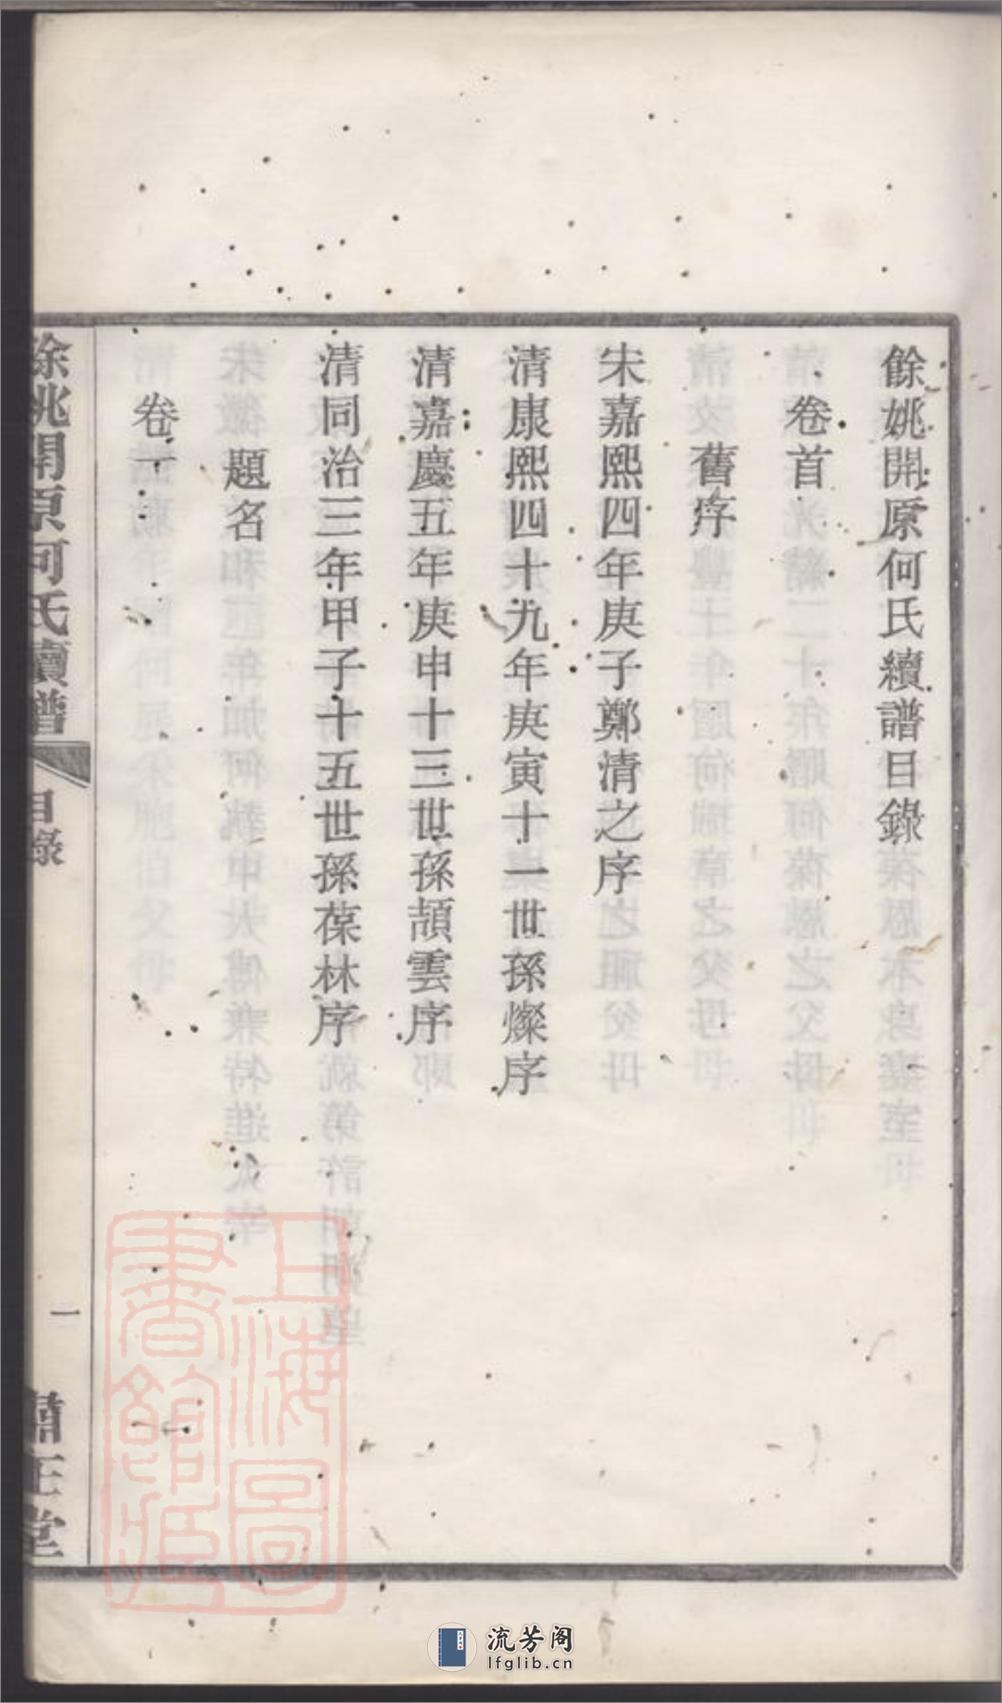 餘姚開原何氏續譜目錄
卷首
舊序
宋嘉熙四年庚子鄭清之序
清康熙四十九年庚寅十一世孫燦序
清嘉慶五年庚申十三世孫頡雲序
清同治三年甲子十五世孫葆林序
題名
卷一
餘姚開原何氏續譜
目錄
一
正堂
上海圖書館藏
流芳阁
lfglib.cn